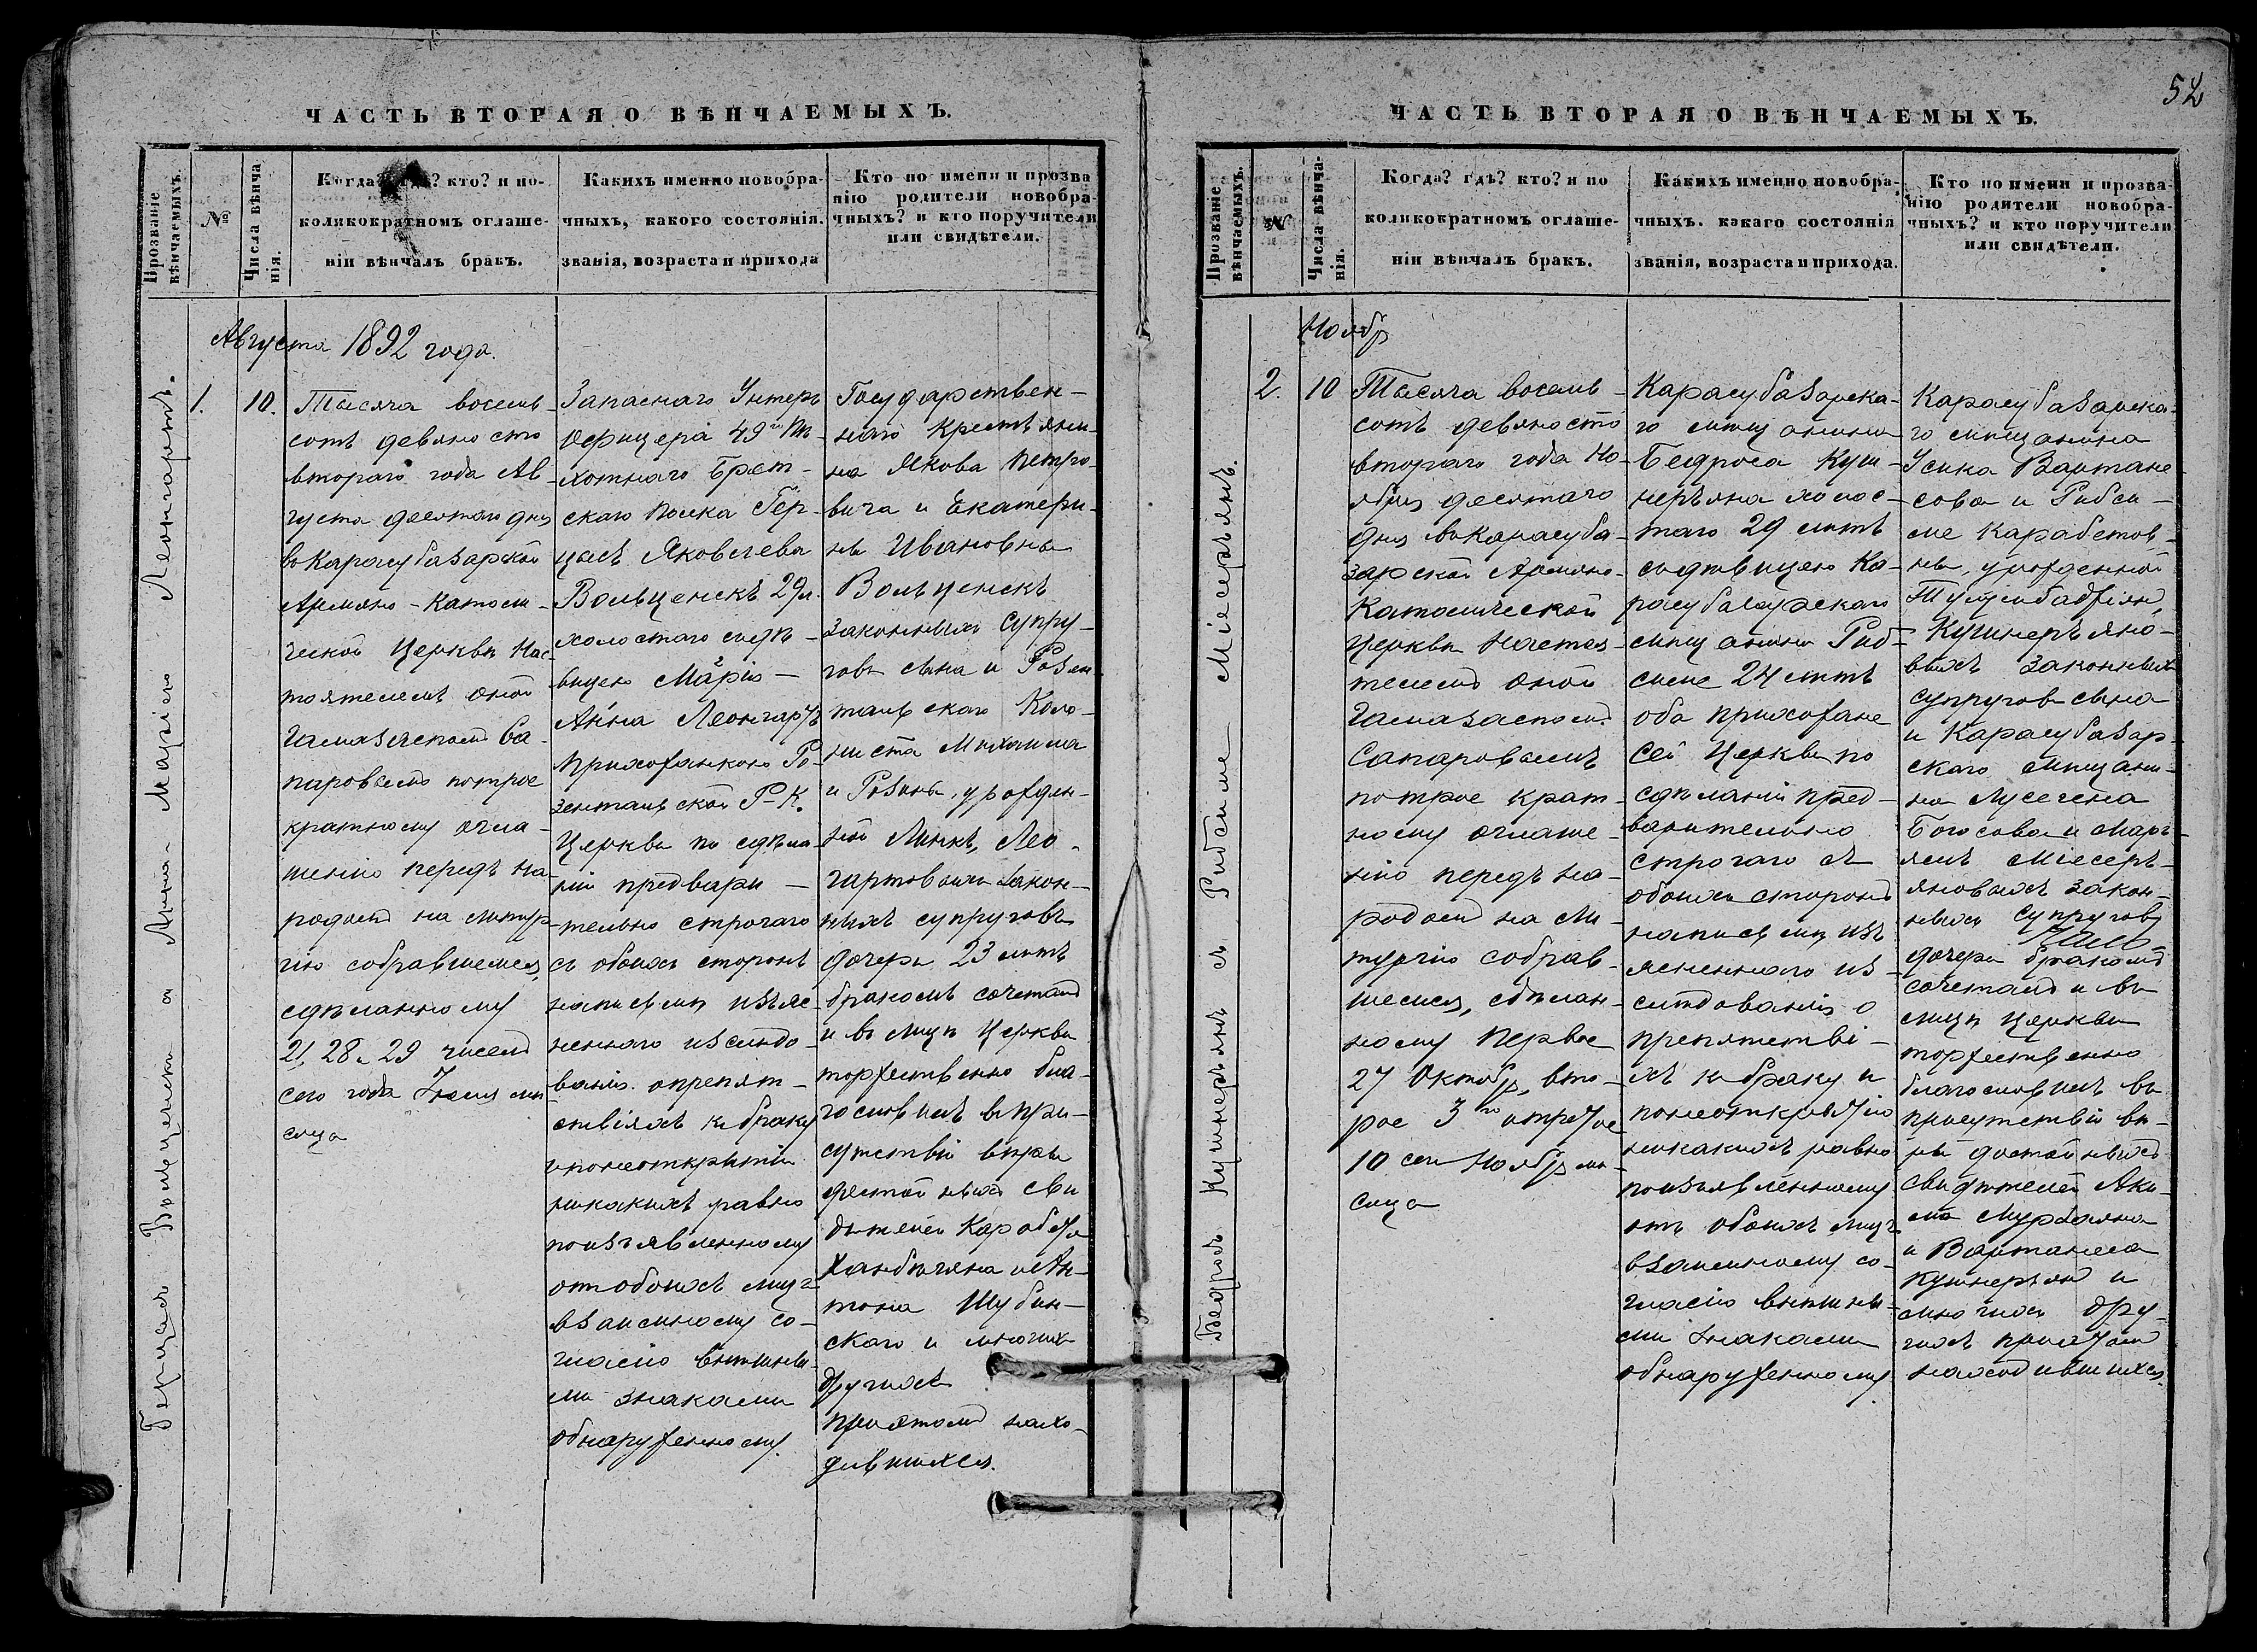 52
ЧАСТЬ ВТОРАЯ О ВѢНЧАЕМЫХЪ.
Прозваніе вѣнчаемыхъ.
№
Числа вѣнча
нія.
Когда? гдѣ? кто? и по-
коликократномъ оглаше-
ніи вѣнчалъ бракъ.
Какихъ именно новобра-
чныхъ, какого состоянія.
званія, возраста и прихода
Кто по имени и прозва
нію родители новобра-
чныхъ? и кто поручители
или свидѣтели.
Августа 1892 года.
Леонгартъ.
1.
10.
Тысяча восемь-
сотъ девяносто
втораго года Ав-
густа десятаго дня
въ Карасубазарской
Армяно-Католи-
ческой Церкви Нас-
тоятелемъ оной
Гамазаспомъ Са-
паровымъ по трое
кратному огла-
шенію передъ на-
родомъ на литур-
гію собравшемся,
сдѣланному
21, 28 и 29 чиселъ
сего года Іюля мѣ
сяца
Запаснаго Унтеръ
Офицера 49го Пѣ-
хотнаго Брест-
скаго Полка Гер-
Яковлева
Вольценскъ 29 л.
холостаго съ дѣ-
вицею Марію-
Анна Леонгартъ
Прихожанкою Ро-
зентальской Р-К.
Церкви по сдѣла-
ніи предвари-
тельно строгаго
съ обоихъ сторонъ
написьми изъяс-
неннаго изслѣдо-
ванія о препят-
ствіяхъ къ браку
и по неоткрытіи
никакихъ равно
по изъявленному
отъ обоихъ лицъ
взаимному со-
гласію внѣшны-
ми знаками
обнаруженному.
Государствен-
наго Крестьяни-
на Якова Петро-
вича и Екатери-
ны Ивановны
Вольценскъ
законныхъ супру-
говъ сына и Розен
тальскаго Коло-
ниста Михаила
и Розины, урожден-
ной Линкъ, Лео-
нгартовыхъ закон-
ныхъ супруговъ
дочери 23 лѣтъ
бракомъ сочеталъ
и въ лицѣ Церкви
торжественно бла-
гословилъ въ при-
сутствіи вѣры
достойныхъ сви
дѣтелей Карабета
и Ан-
тона Шубин-
скаго и многихъ
другихъ
при этомъ нахо-
дившихся.
ЧАСТЬ ВТОРАЯ О ВѢНЧАЕМЫХЪ.
Прозваніе вѣнчаемыхъ.
№
Числа вѣнча-
нія.
Когда? гдѣ? кто? и по
коликократномъ оглаше-
ніи вѣнчалъ бракъ.
Какихъ именно новобра-
чныхъ. какаго состоянія
званія, возраста и прихода.
Кто по имени и прозва-
нію родители новобра-
чныхъ? и кто поручители
или свидѣтели.
Ноябр
Бедросъ Кушнерьянъ съ Рибсиме Місерьянъ.
2.
10
Тысяча восемь-
сотъ девяносто
втораго года Но-
ября десятаго
дня въ Карасуба-
зарской Армяно-
Католической
Церкви Настоя-
телемъ оной
Гамазаспомъ
Сапаровымъ
по трое крат-
ному оглаше-
нію передъ на-
родомъ на ли-
тургію собрав-
шемся, сдѣлан-
ному Первое
27 Октябр, вто-
рое 3го и третое
10 сего Ноябр мѣ-
сяца
Карасубазарска-
го мѣщанина
Бедроса Куш-
нерьяна холос-
таго 29 лѣтъ
съ дѣвицею Ка-
расубазарскаго
мѣщанина Риб-
симе 24 лѣтъ
оба прихожане
сей Церкви по
сдѣланіи пред-
варительно
строгаго съ
обоихъ сторонъ
написьми изъ
ясненнаго из-
слѣдованія о
препятстві-
яхъ къ браку и
по неоткрытію
никакихъ равно
по изъявленному
отъ обоихъ лицъ
взаимному со-
гласію внѣшны-
ми знаками
обнаруженному.
Карасубазарска-
го мѣщанина
Усика Вартане-
сова и Рибси-
ме Карабетов-
ны, урожденной
Кушнерьяно-
выхъ законныхъ
супруговъ сына
и Карасубазар-
скаго мѣщани-
на Мусегена
Богосова и Марь-
ямъ Місерь-
яновыхъ закон-
ныхъ супруговъ
дочери бракомъ
сочеталъ и въ
лицѣ Церкви
торжественно
благословилъ въ
присутствіи вѣ-
ры достойныхъ
свидѣтелей Аки-
ма Мурзаяна
и Вартанеса
Кушнерьянъ и
многихъ дру-
гихъ при этомъ
находившихся.